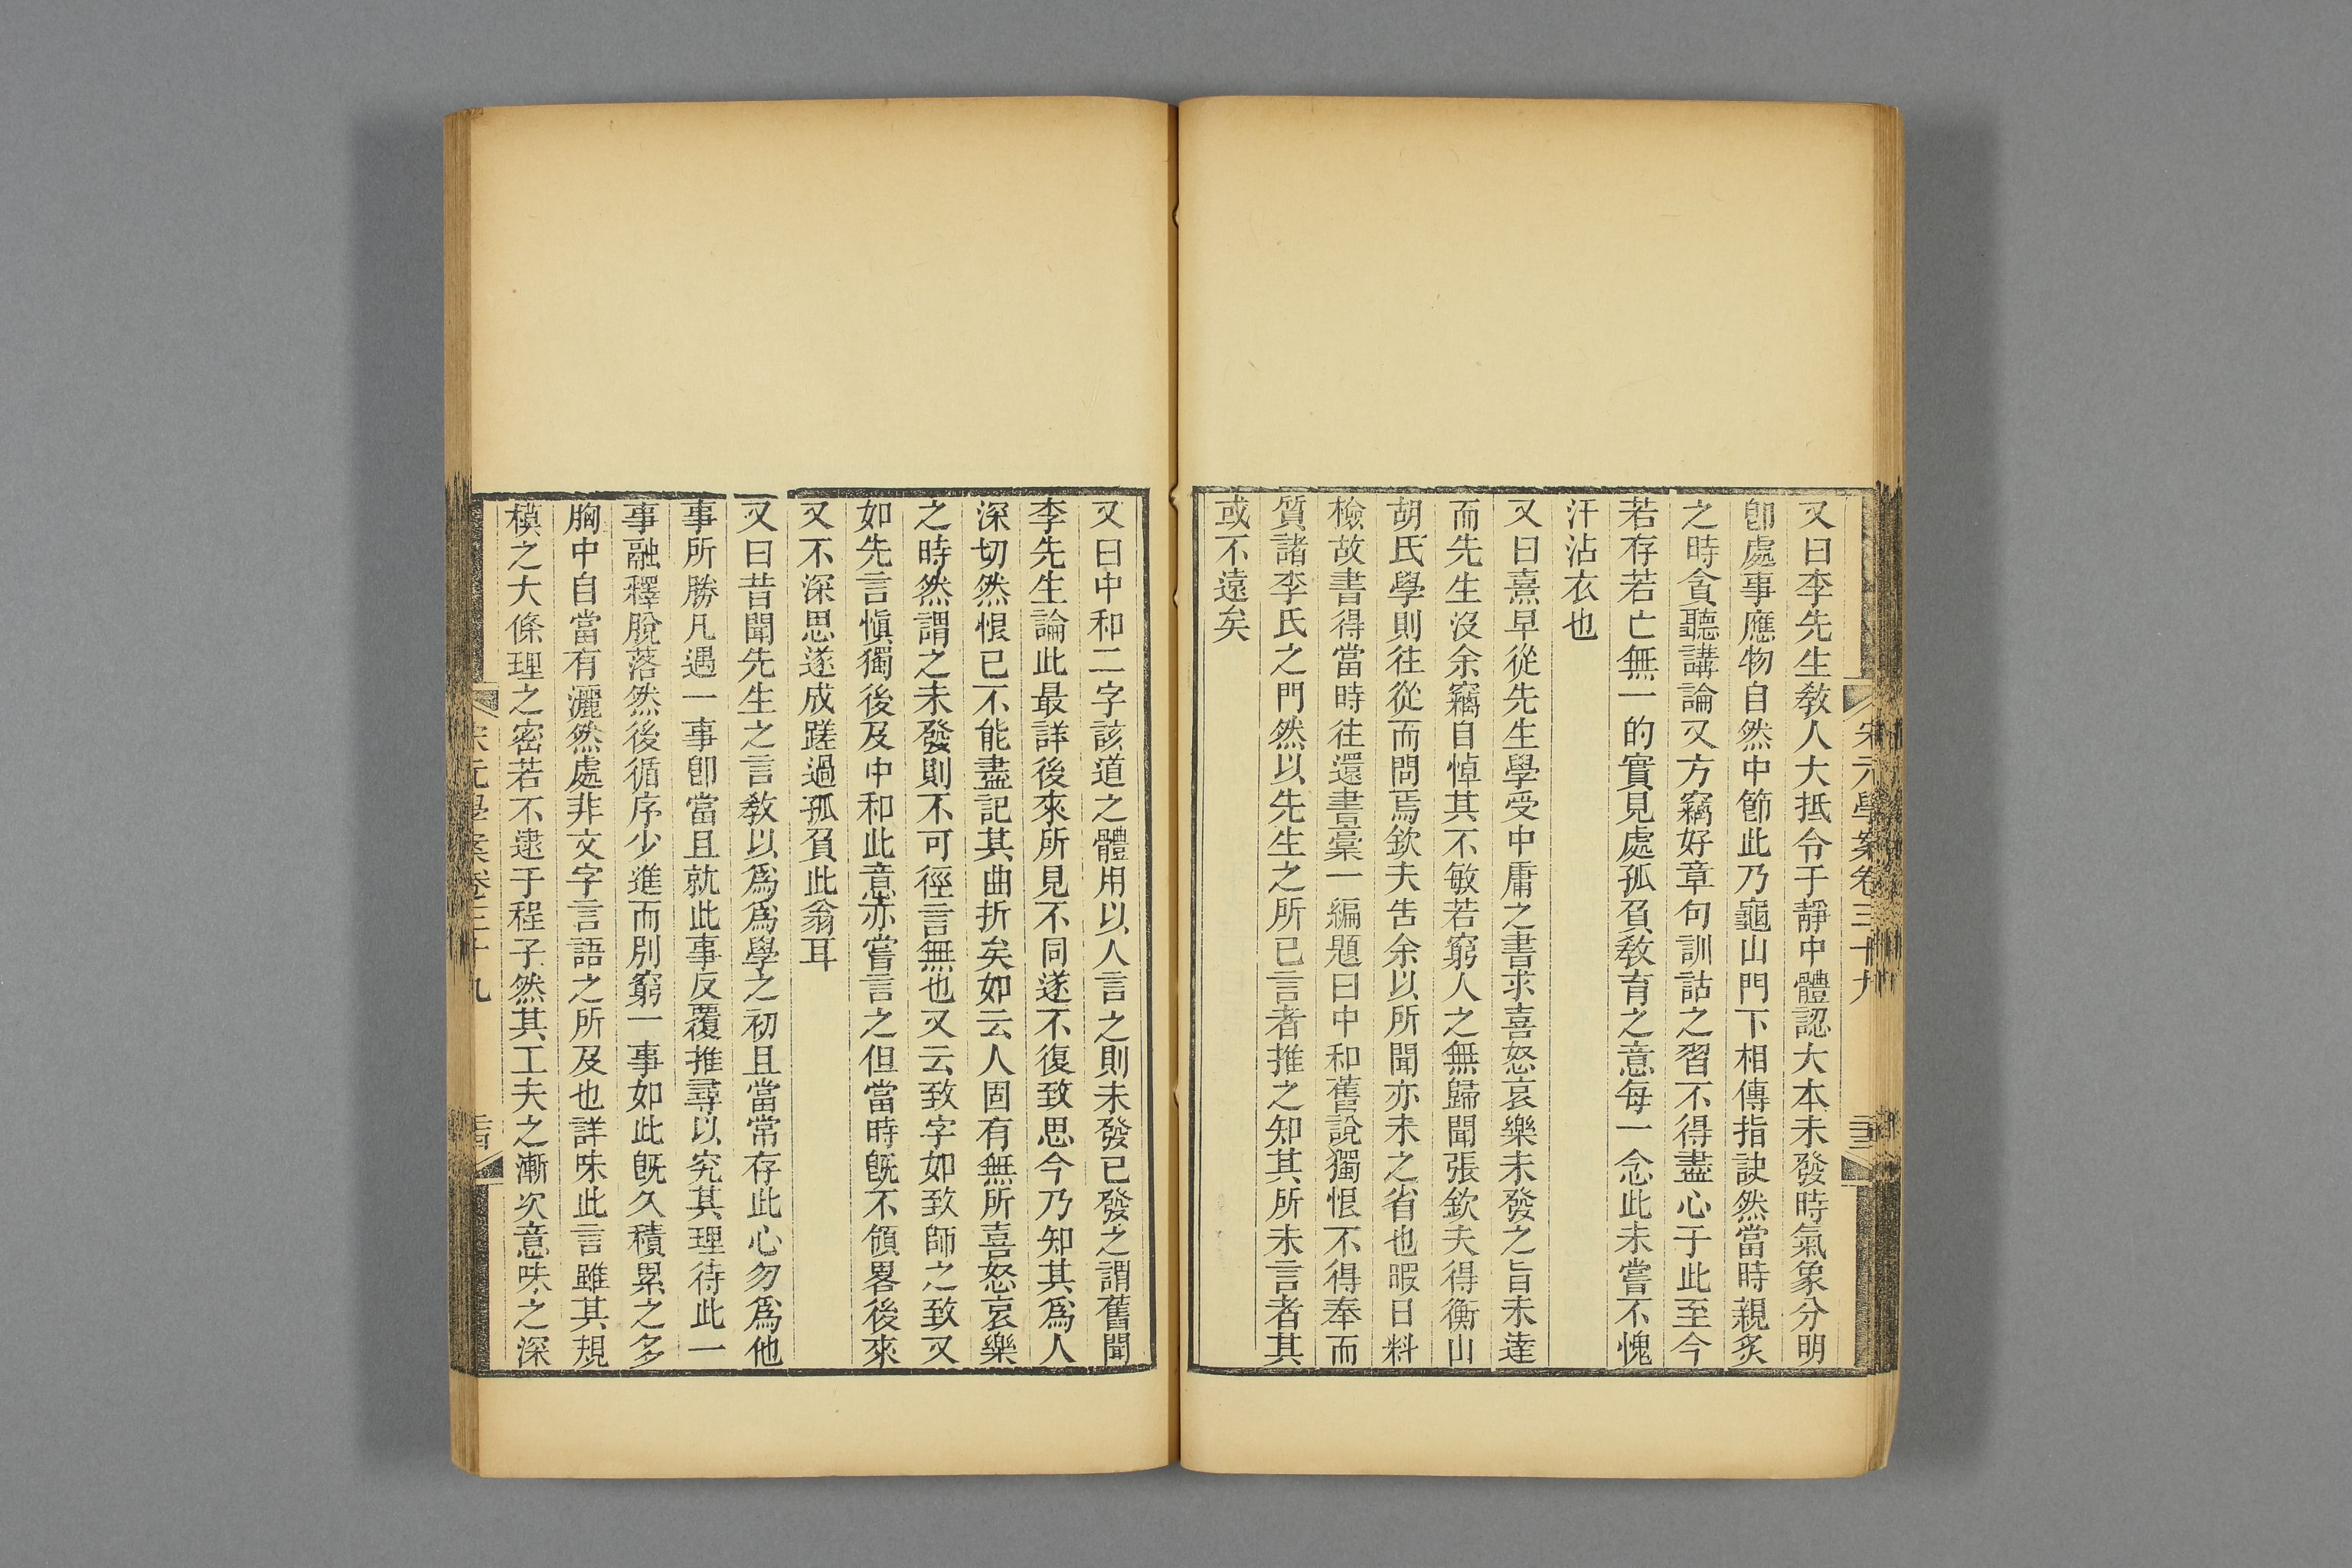 宋元學案卷三十九
又曰李先生敎人大抵令于靜中體認大本未發時氣象分明
卽處事應物自然中節此乃龜山門下相傳指訣然當時親炙
之時貪聽講論又方竊好章句訓詁之習不得盡心于此至今
若存若亡無一的實見處孤負敎育之意每一念此未嘗不愧
汗沾衣也
又曰熹早從先生學受中庸之書求喜怒哀樂未發之旨未達
而先生沒余竊自悼其不敏若窮人之無歸聞張欽夫得衡山
胡氏學則往從而問焉欽夫告余以所聞亦未之省也暇日料
檢故書得當時往還書稾一編題曰中和舊說獨恨不得奉而
質諸李氏之門然以先生之所已言者推之知其所未言者其
或不遠矣
又曰中和二字該道之體用以人言之則未發已發之謂舊聞
李先生論此最詳後來所見不同遂不復致思今乃知其爲人
深切然恨已不能盡記其曲折矣如云人固有無所喜怒哀樂
之時然謂之未發則不可徑言無也又云致字如致師之致又
如先言愼獨後及中和此意亦嘗言之但當時旣不領畧後來
又不深思遂成蹉過孤負此翁耳
又曰昔聞先生之言敎以爲爲學之初且當常存此心勿爲他
事所勝凡遇一事卽當且就此事反覆推尋以究其理待此一
事融釋脫落然後循序少進而別窮一事如此旣久積累之多
胸中自當有灑然處非文字言語之所及也詳味此言雖其規
模之大條理之密若不逮于程子然其工夫之漸次意味之深
宋元學案卷三十九